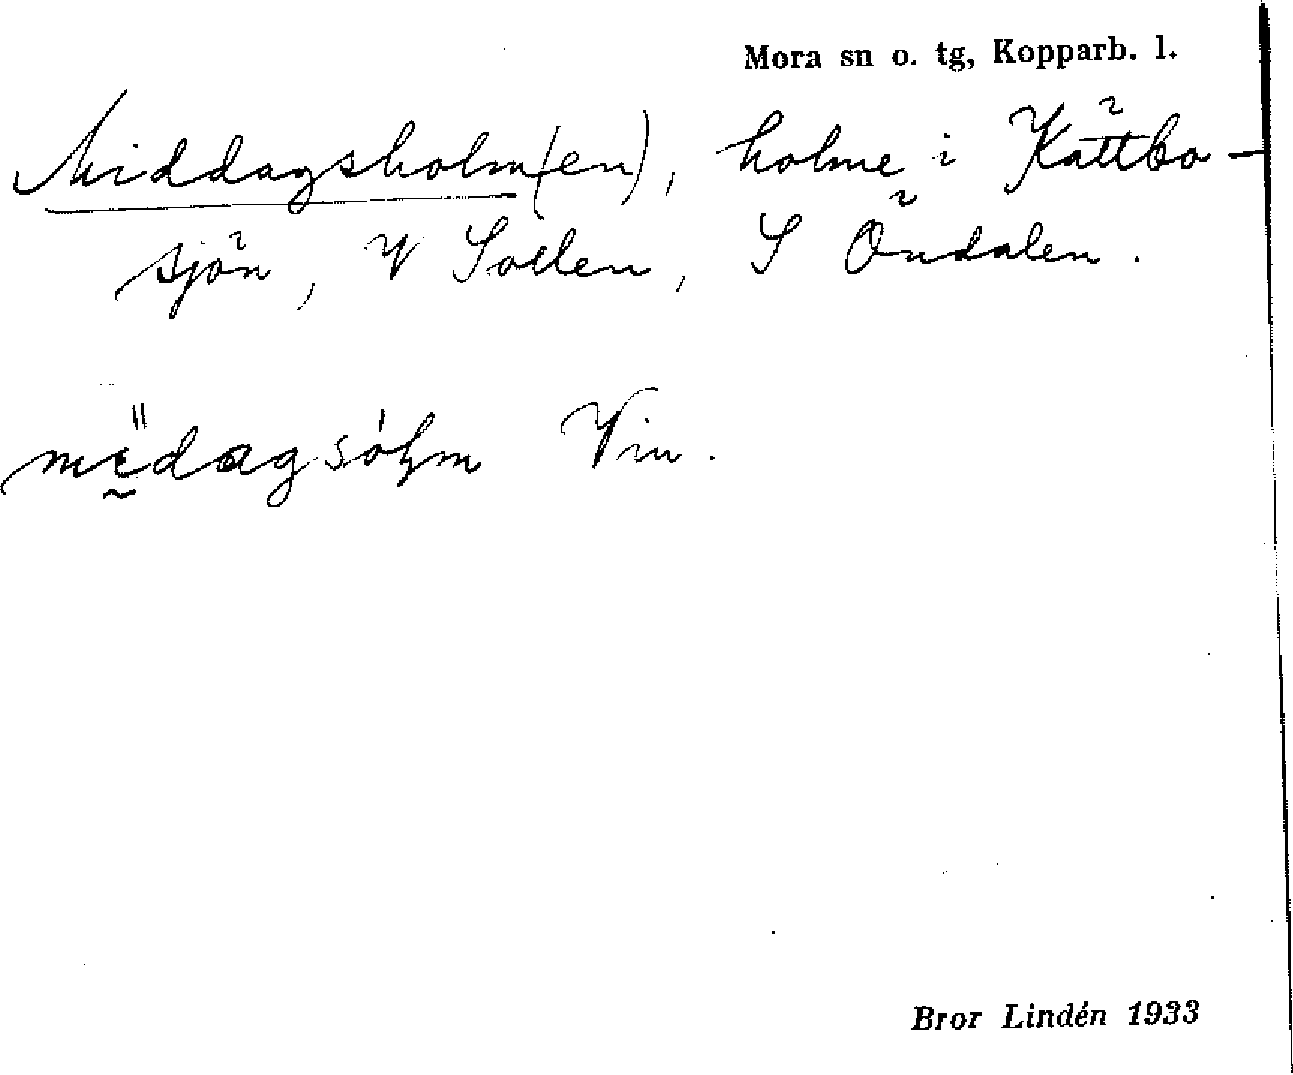 Mora sn o. tg, Kopparb. l.
Middagsholm(en), holme i Kättbo-
sjön, V Sollen, S Öndalen.
Vin.
Bror Lindén 1933